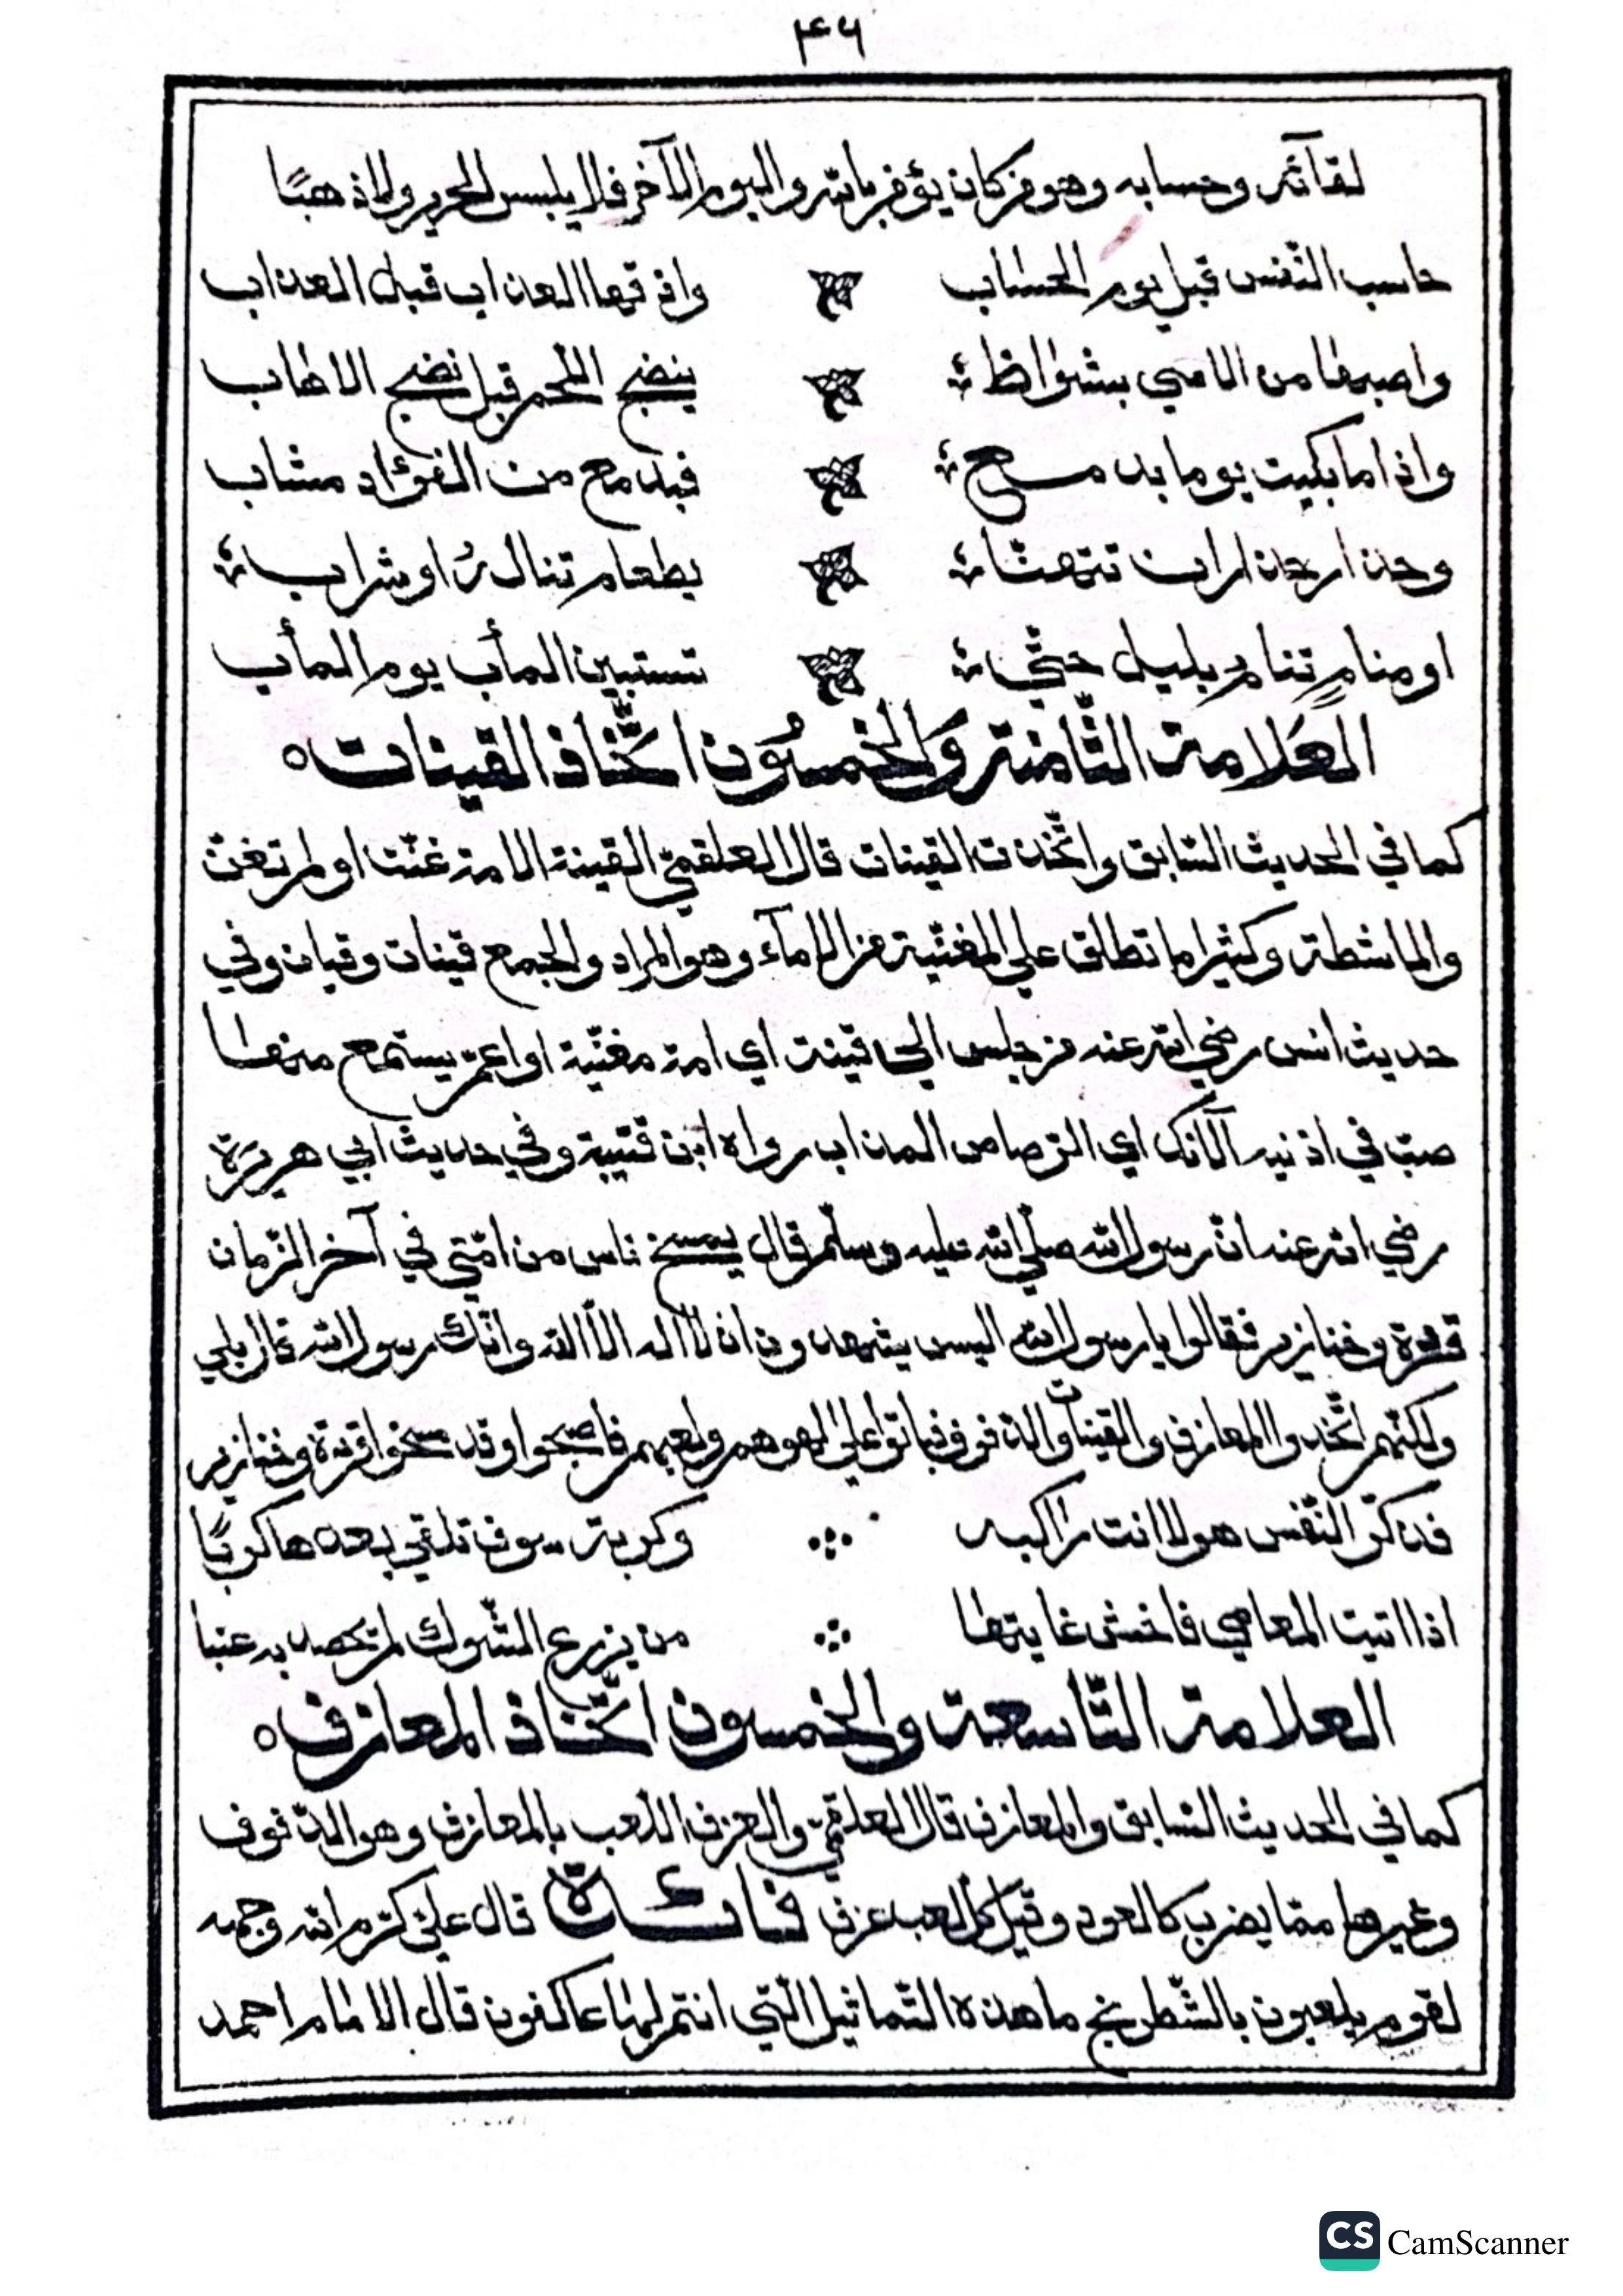 ٣٤٦
لقآئه وحسابه وهو من كان يؤمن بالله واليوم الآخر فلا يلبس الحرير ولا ذهبًا
حاسب النّفس قبل يوم الحساب واذقها العذاب قبل العذاب
واصبها من الاسي بشواظ ينضج اللّحم قبل نضج الاهاب
واذا ما بكيت يوما بدمع فبدمع من الفؤاد مشاب
وحذار حذار ان تتهنّا بطعام تناله او شراب
او منامٍ تنام بليل حتّي تستبين المأب يوم المأب
العلامة الثّامنة والخمسون اتّخاذ القينات
كما في الحديث السّابق واتّخذت القينات قال العلقميّ القينة الامة غنّت او لم تغنّ
والماشطة وكثيرا ما تطلق علي المغنّية من الامآء وهو المراد والجمع قينات وقيان وفي
حديث انس رضي الله عنه من جلس الي قينة اي امة مغنّية او اعمّ يستمع منها
صبّ في اذنيه الآنك اي الرّصاص المذاب رواه ابن قتيبة وفي حديث ابي هريرة
رضي الله عنه انّ رسول الله صلّي الله عليه وسلّم قال يمسخ ناس من امّتي في آخر الزّمان
قردة وخنازير فقالوا يا رسول الله اليس يشهدون ان لا اله الاّ الله وانّك رسول الله قال بلي
ولكنّهم اتّخذوا المعازف والقينات والدّفوف فباتوا علي لهوهم ولعبهم فاصبحوا وقد مسخوا قردة وخنازير
فذكّر النّفس هولا انت راكبه وكربة سوف تلقي بعدها كربًا
اذا اتيت المعاصي فاخش غايتها من يزرع الشّوك لم يحصد به عنبا
العلامة التّاسعة والخمسون اتّخاذ المعازف
كما في الحديث السّابق والمعازف قال العلقميّ والعزف اللّعب بالمعازف وهو الدّفوف
وغيرها ممّا يضرب كالعود وقيل كلّ لعب عزف فائدة قال عليّ كرّم الله وجهه
لقوم يلعبون بالشّطرنج ما هذه التّماثيل الّتي انتم لها عاكفون قال الامام احمد
CS CamScanner